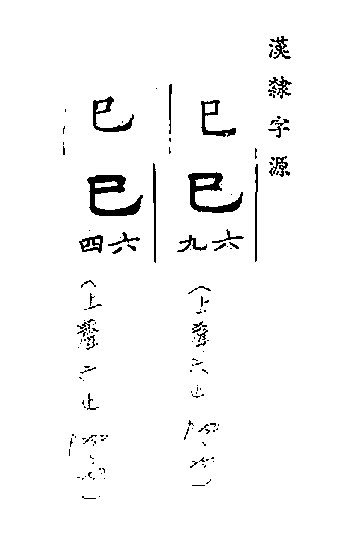 漢隸字源
巳
巳
六九
(上聲六止
巳
巳
六四
(上聲六止